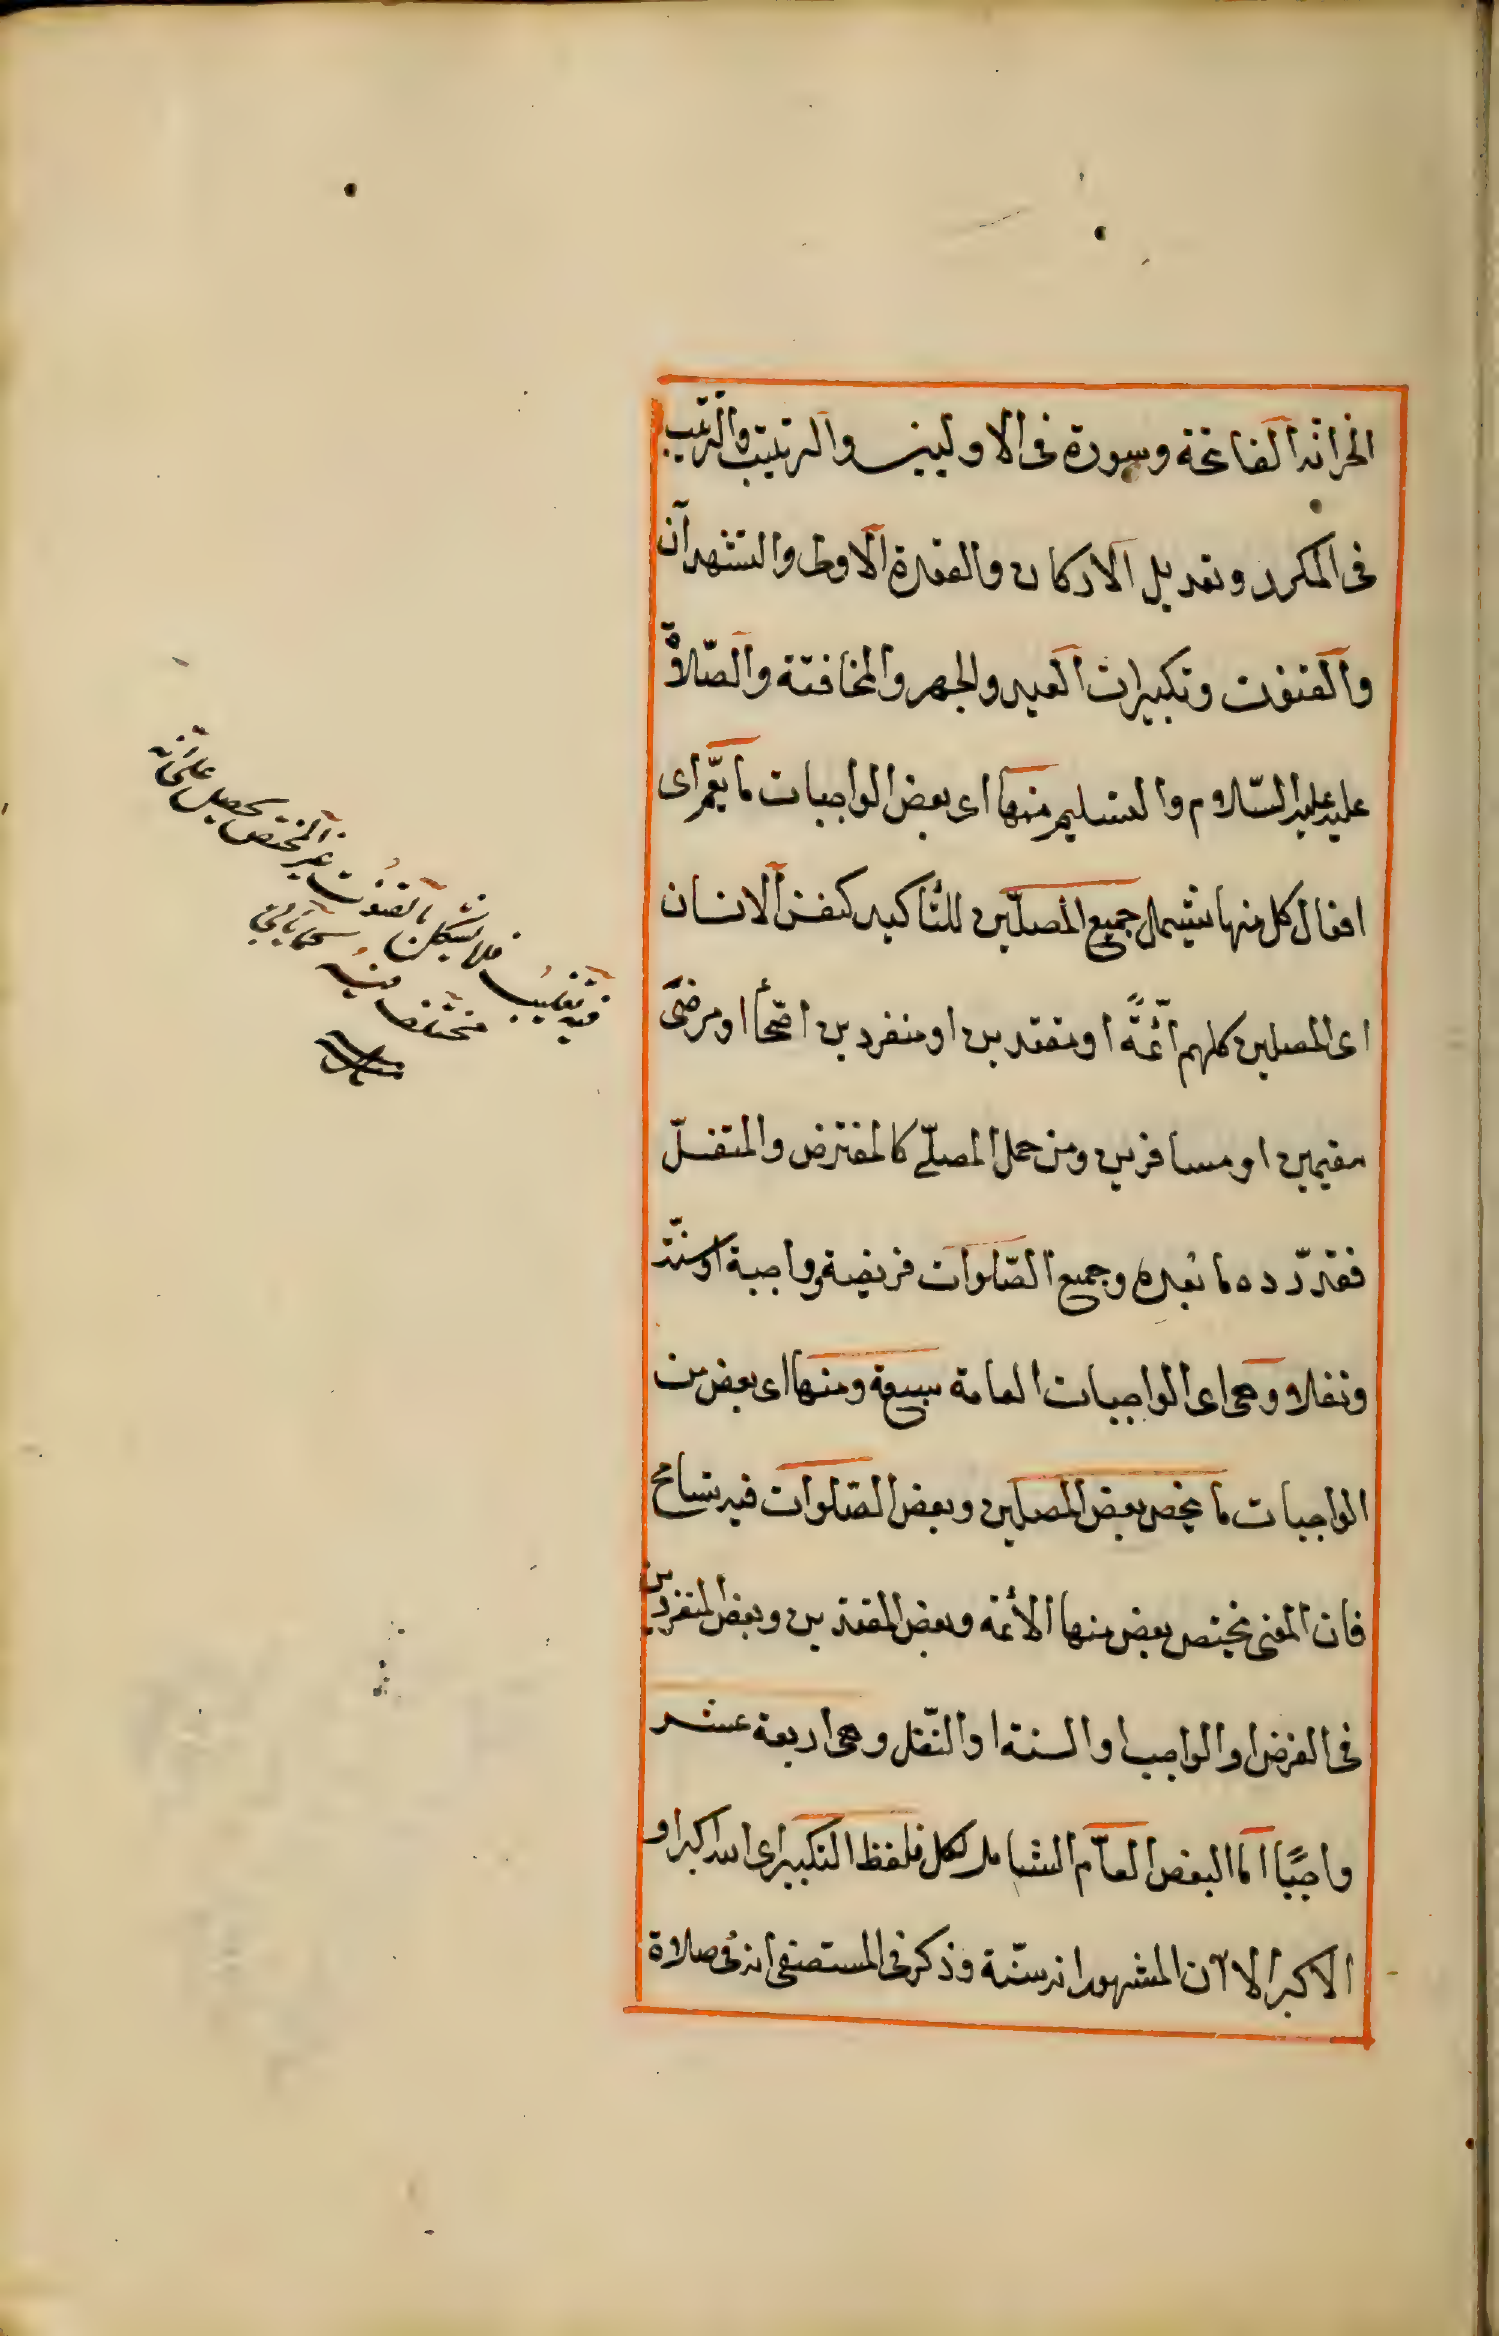 الخزانة الفاتحة وسورة فى الاوليين والترتيب والترتيب
فى المكرر وتعديل الاركان والقعدة الاولى والتشهدان
والقنوت وتكبيرات العيد والجهر والمخافتة والصّلاة
عليه عليه السّلام والتسليم منها اى بعض الواجبات ما يعمّ اى
افعال كل منها يشمل جميع المصلّين للتأكيد كنفس الانسان
اى المصلين كلهم أئمّةً او مقتدين او منفردين اصّحأ او مرضىَ
مقيمين او مسافرين ومن حمل المصلّے كالمفترض والمتنفلّ
فقد ردّه ما بعده وجميع الصّلوات فريضة وواجبة او سنّة
ونفلا وهى اى الواجبات العامة سبعة ومنها اى بعض من
الواجبات ما يخص بعض المصلين وبعض الصّلوات فيه تسامح
فان المعنى يختص بعض منها الأئمة وبعض المقتدين وبعض المنفردين
فى الفرض او الواجب او السنة او النّفل وهى اربعة عشر
واجبًا امّا البعض العاّم الشامل لكل فلفظ التكبير اى الله اكبر او
الاكبر الا ان المشهور انه سنّة وذكر فى المستصفى انه فى صلاة
فيه تغليب فلا يشكل بالقنوت
منه